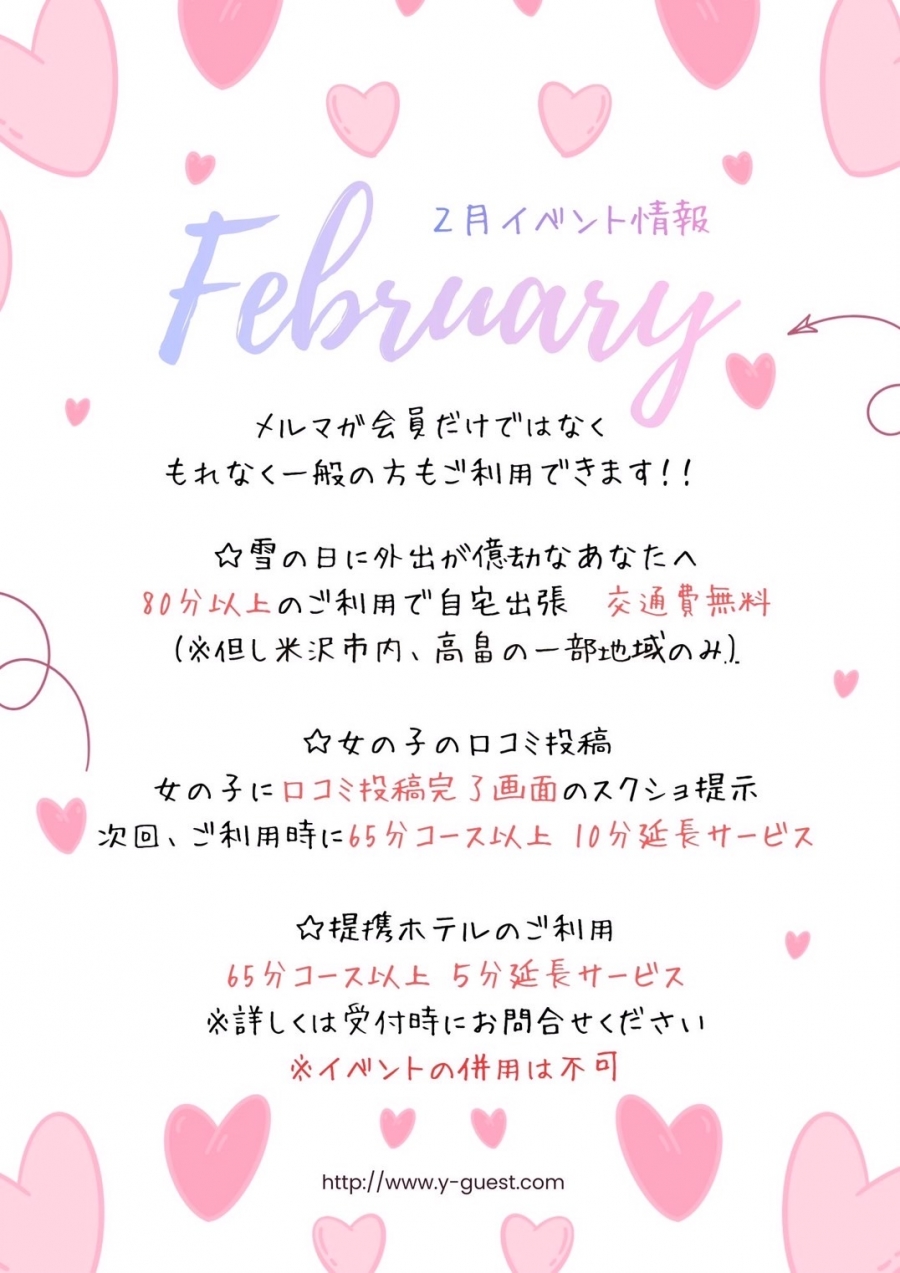 2月イベント情報
February
メルマガ会員だけではなく
もれなく一般の方もご利用できます!!
☆雪の日に外出が億劫なあなたへ
80分以上のご利用で自宅出張 交通費無料
(※但し米沢市内、高畠の一部地域のみ).
☆女の子の口コミ投稿
女の子に口コミ投稿完了画面のスクショ提示
次回、ご利用時に65分コース以上 10分延長サービス
☆提携ホテルのご利用
65分コース以上 5分延長サービス
※詳しくは受付時にお問合せください
※イベントの併用は不可
http://www.y-guest.com